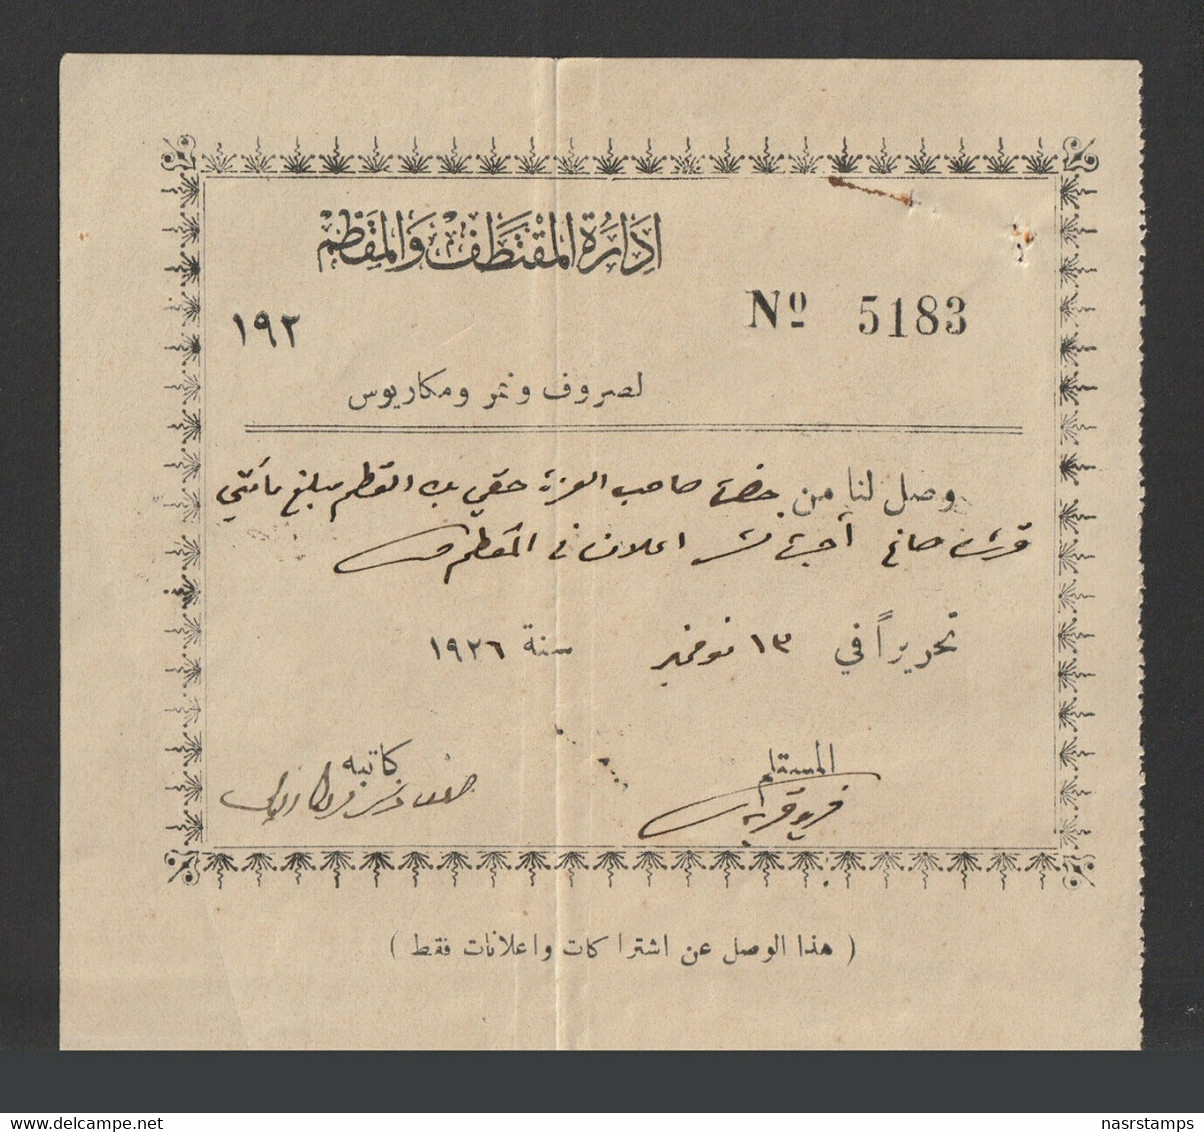 إدارة المقتطف والمقطم
Nº 5183
١٩٢
لصروف ونمر ومكاريوس
وصل لنا من حضرة صاحب العزة حقي بك العظم مبلغ مأتي
قرش صاغ أجرة نشر اعلان في المقطم
تحريراً في ١٣ نوفمبر سنة ١٩٢٦
المستلم
كاتبه
( هذا الوصل عن اشتراكات واعلانات فقط )
nasrstamps